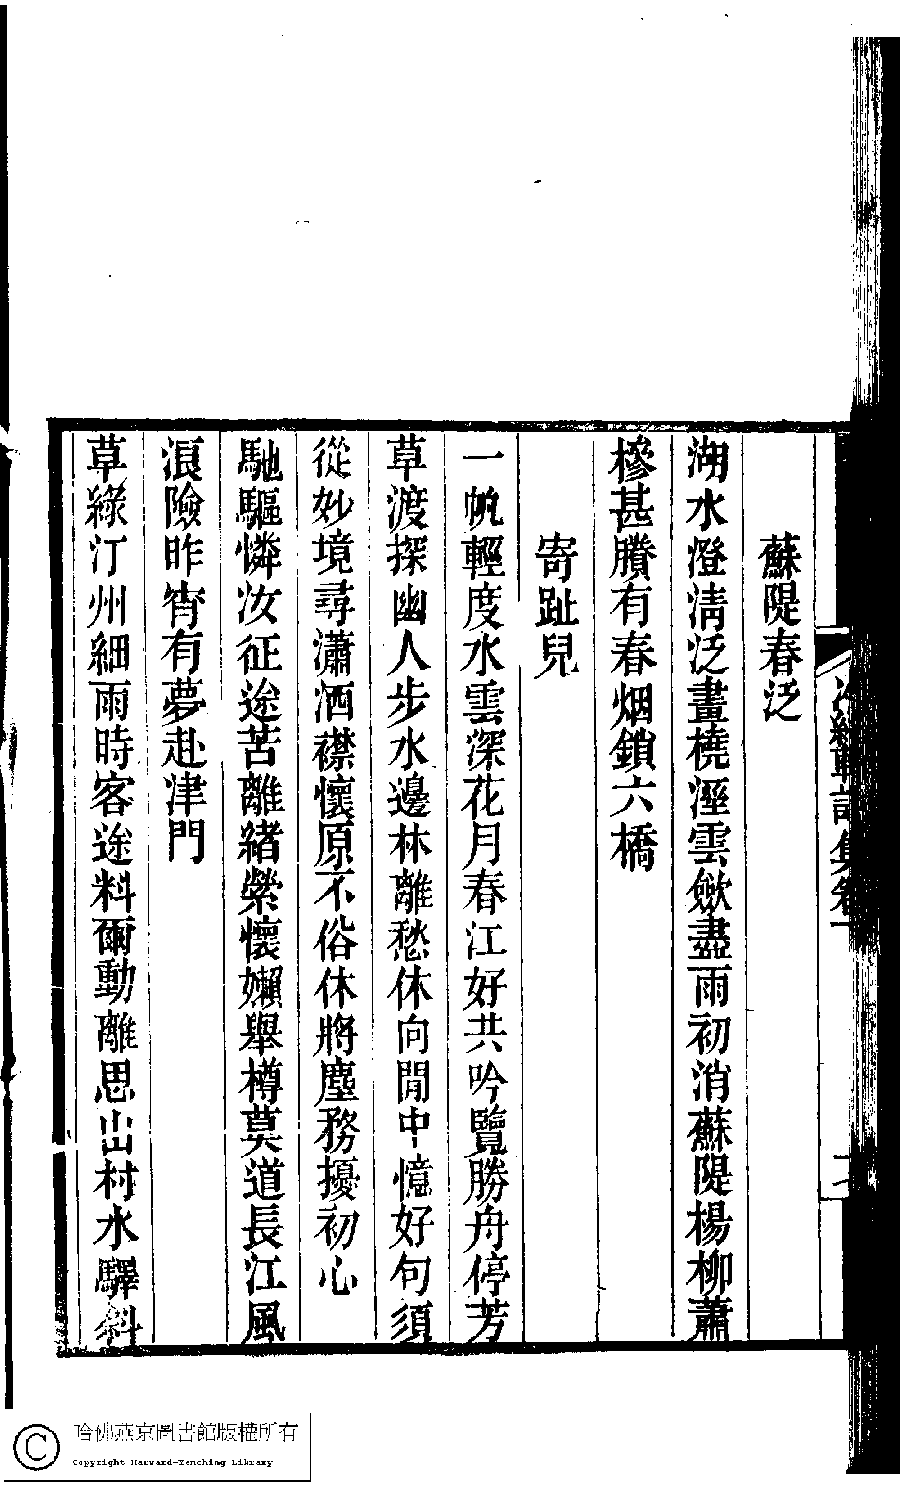 蘇隄春泛
湖水澄淸泛畫橈溼雲斂盡雨初消蘇隄楊柳蕭
槮甚賸有春烟鎖六橋
寄趾兒
一帆輕度水雲深花月春江好共吟覽勝舟停芳
草渡探幽人步水邊林離愁休向閒中憶好句須
從妙境尋瀟洒襟懷原不俗休將塵務擾初心
馳驅憐汝征途苦離緒縈懷嬾舉樽莫道長江風
浪險昨宵有夢赴津門
草綠汀州細雨時客途料爾動離思出村水驛斜
哈佛燕京圖書館版權所有
Copyright Harvard-Yenching Library